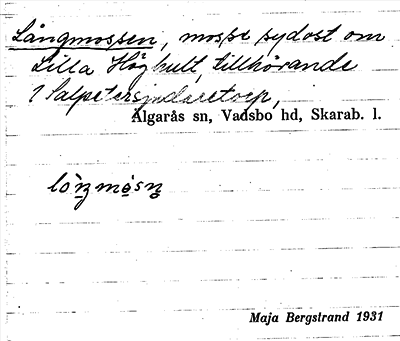 Långmossen, mosse sydost om
Lilla Höghult, tillhörande
1 Salpetersjudaretorp,
Algarås sn, Vadsbo hd, Skarab. l.
Maja Bergstrand 1931